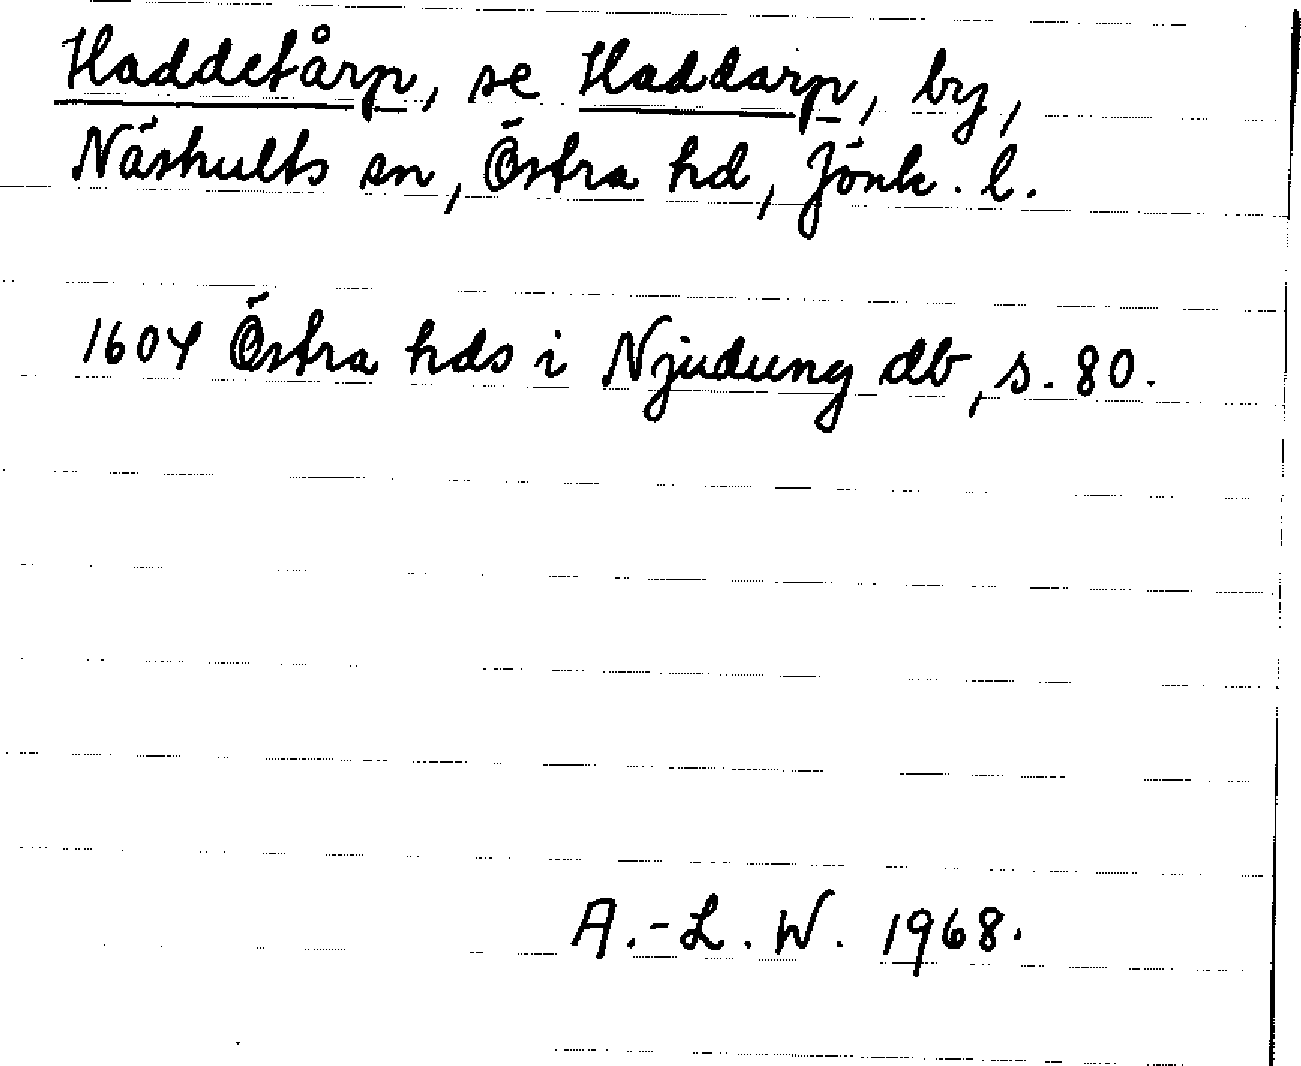 Haddetårp, se Haddarp, by,
Näshults sn, Östra hd, Jönk. l.
1604 Östra hds i Njudung db, s. 80.
A.-L. W. 1968.